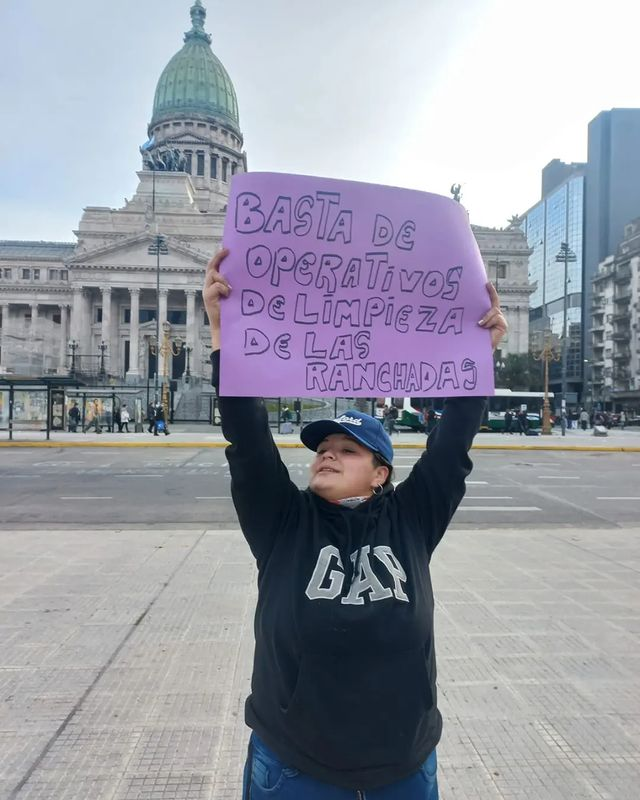 BASTA DE
OPERATIVOS
DE LIMPIEZA
DE LAS
RANCHADAS
GAP